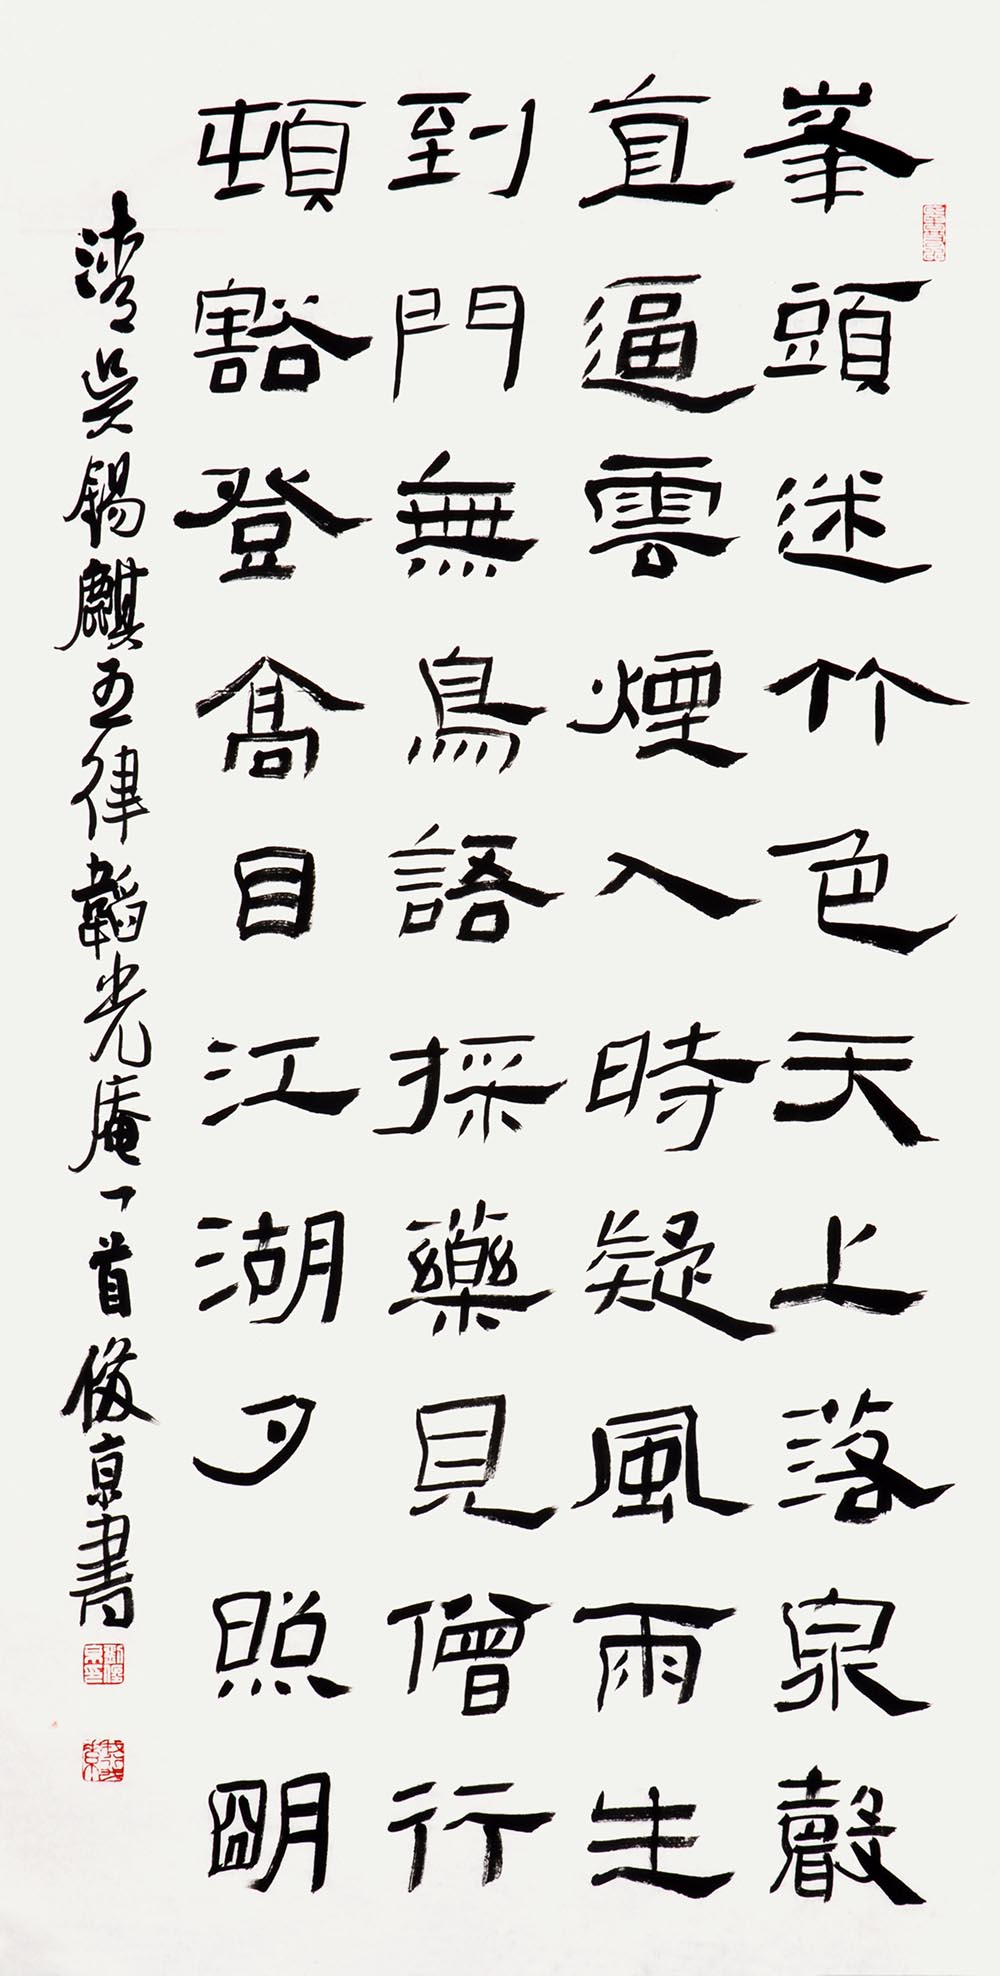 峯頭迷竹色天上落泉聲
直逼雲煙入時疑風雨生
到門無鳥語採藥見僧行
頓豁登髙目江湖夕照朙
清吳錫麒五律韜光庵一首俊京書